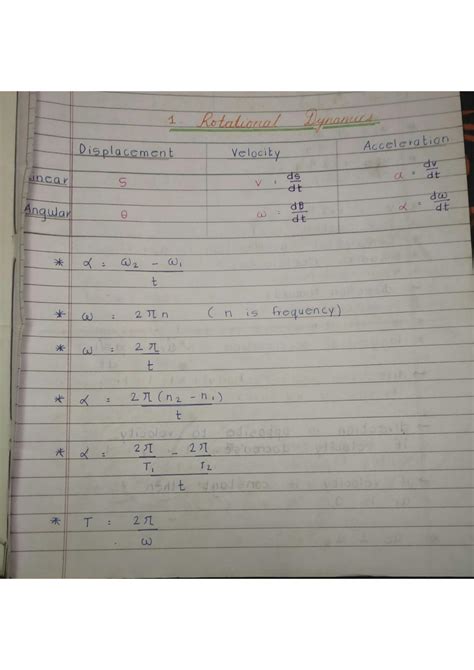 1. Rotational Dynamics
Displacement Velocity Acceleration
Linear S v = ds/dt a = dv/dt
Angular θ ω = dθ/dt α = dω/dt
* α = ω₂ - ω₁ / t
* ω = 2πn (n is frequency)
* ω = 2π / t
* α = 2π(n₂ - n₁) / t
* α = 2π/T₁ - 2π/T₂ / t
* T = 2π / ω